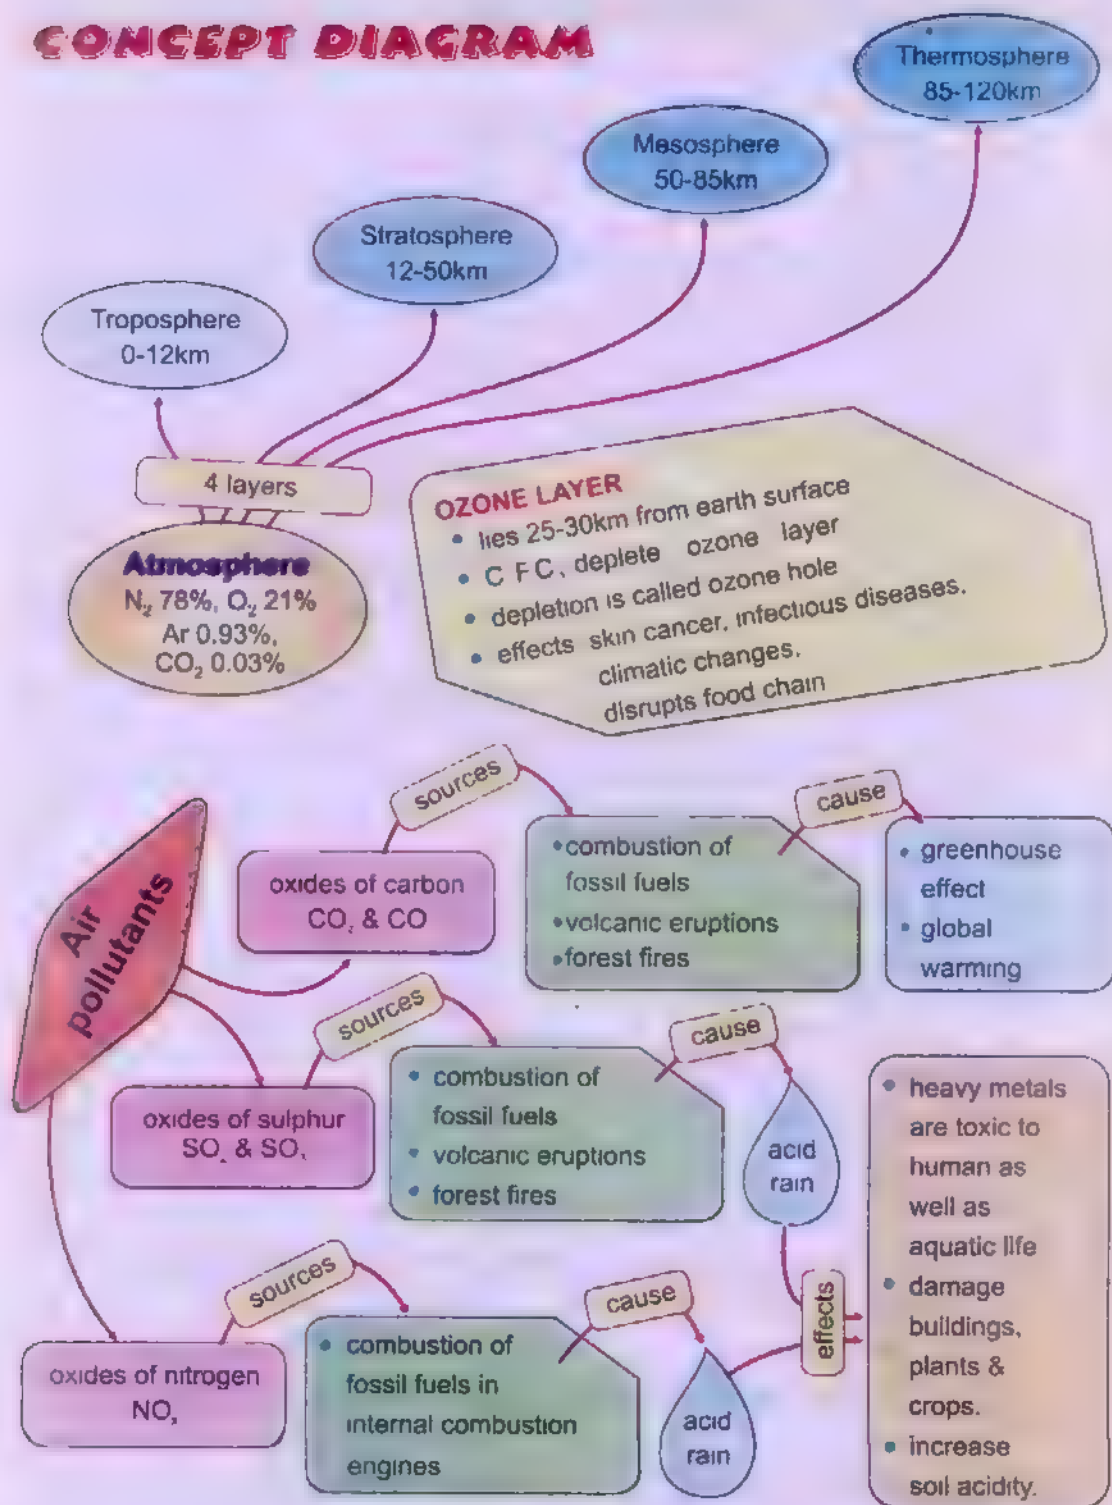 CONCEPT DIAGRAM
Thermosphere
85-120km
Mesosphere
50-85km
Stratosphere
12-50km
Troposphere
0-12km
4 layers
Atmosphere
N₂ 78%, O₂ 21%
Ar 0.93%,
CO₂ 0.03%
OZONE LAYER
• lies 25-30km from earth surface
• C F C, deplete ozone layer
• depletion is called ozone hole
• effects skin cancer, infectious diseases,
climatic changes,
disrupts food chain
Air
pollutants
oxides of carbon
CO₂ & CO
sources
• combustion of
fossil fuels
• volcanic eruptions
• forest fires
cause
• greenhouse
effect
• global
warming
oxides of sulphur
SO₂ & SO₃
sources
• combustion of
fossil fuels
• volcanic eruptions
• forest fires
cause
acid
rain
oxides of nitrogen
NOₓ
sources
• combustion of
fossil fuels in
internal combustion
engines
cause
acid
rain
effects
• heavy metals
are toxic to
human as
well as
aquatic life
• damage
buildings,
plants &
crops.
• increase
soil acidity.